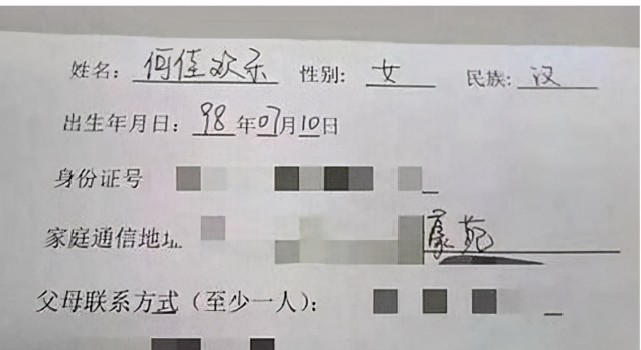 姓名: 何佳欢乐 性别: 女 民族: 汉
出生年月日: 98年07月10日
身份证号
家庭通信地址 康苑
父母联系方式(至少一人):